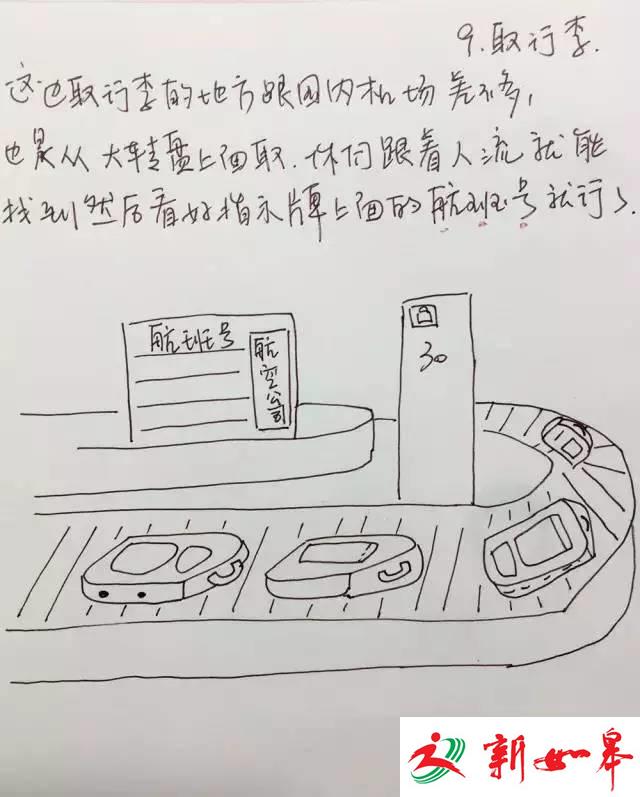 9.取行李.
这边取行李的地方跟国内机场差不多,
也是从大转盘上面取.你们跟着人流就能
找到然后看好指示牌上面的航班号就行了.
航班号
航空公司
30
新如皋